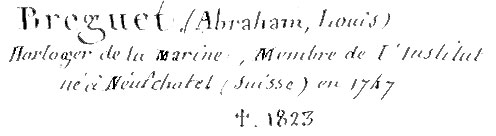 Breguet (Abraham, Louis)
Horloger de la Marine, Membre de l'Institut
né à Neufchatel (Suisse) en 1747
✝. 1823